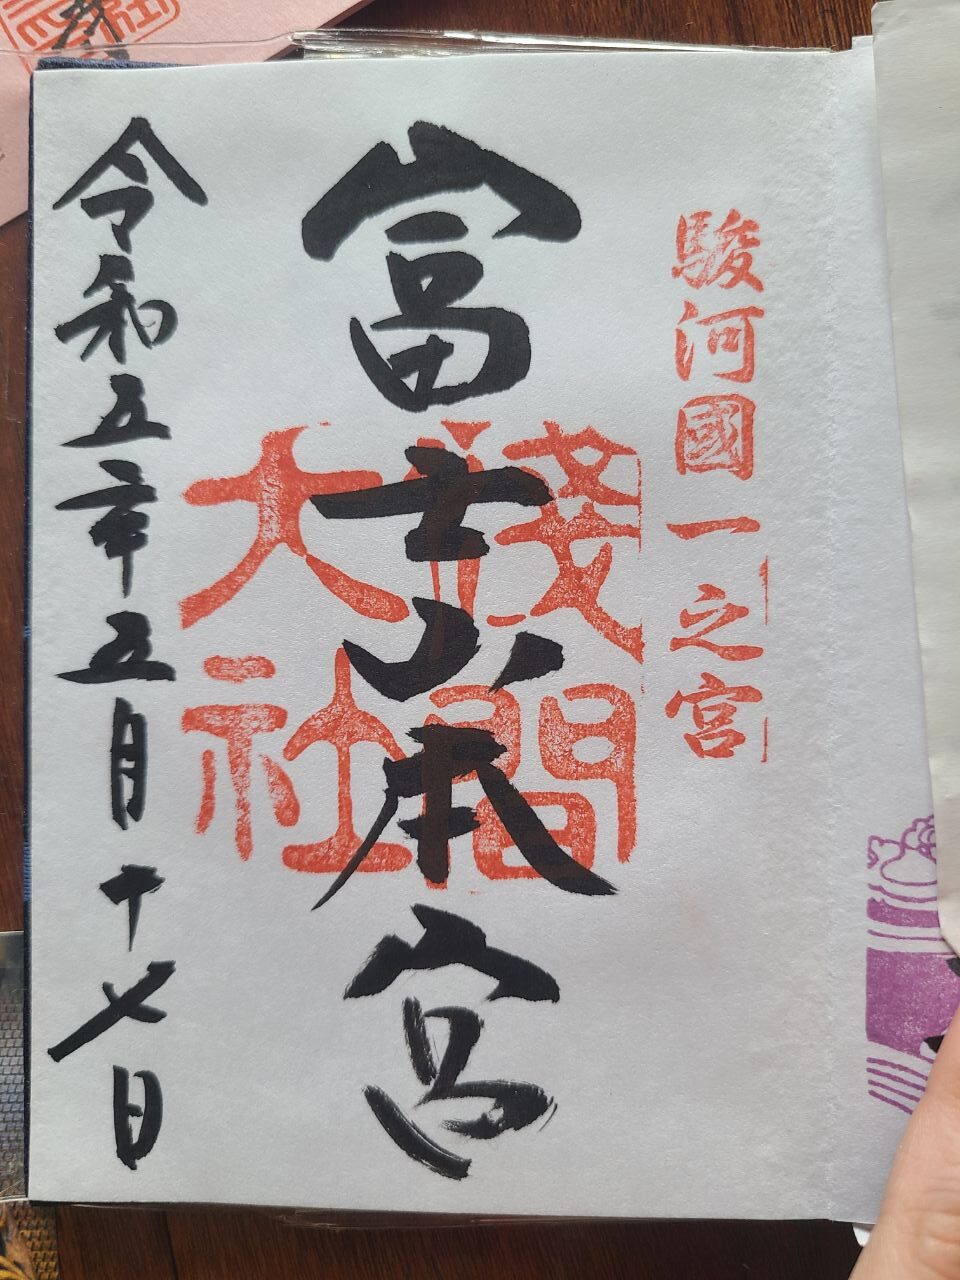 駿河國一之宮
富士山本宮
淺間大社
令和五年五月十七日